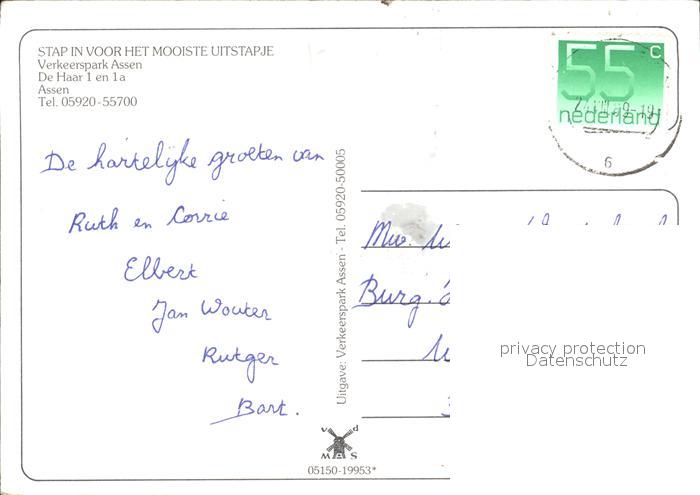 STAP IN VOOR HET MOOISTE UITSTAPJE
Verkeerspark Assen
De Haar 1 en 1a
Assen
Tel. 05920-55700
55 c
nederland
6
De hartelijke groeten van
Ruth en Corrie
Elbert
Jan Wouter
Rutger
Bart.
Uitgave: Verkeerspark Assen - Tel. 05920-50005
Mw.
Burg.
privacy protection
Datenschutz
v d
MAS
05150-19953*